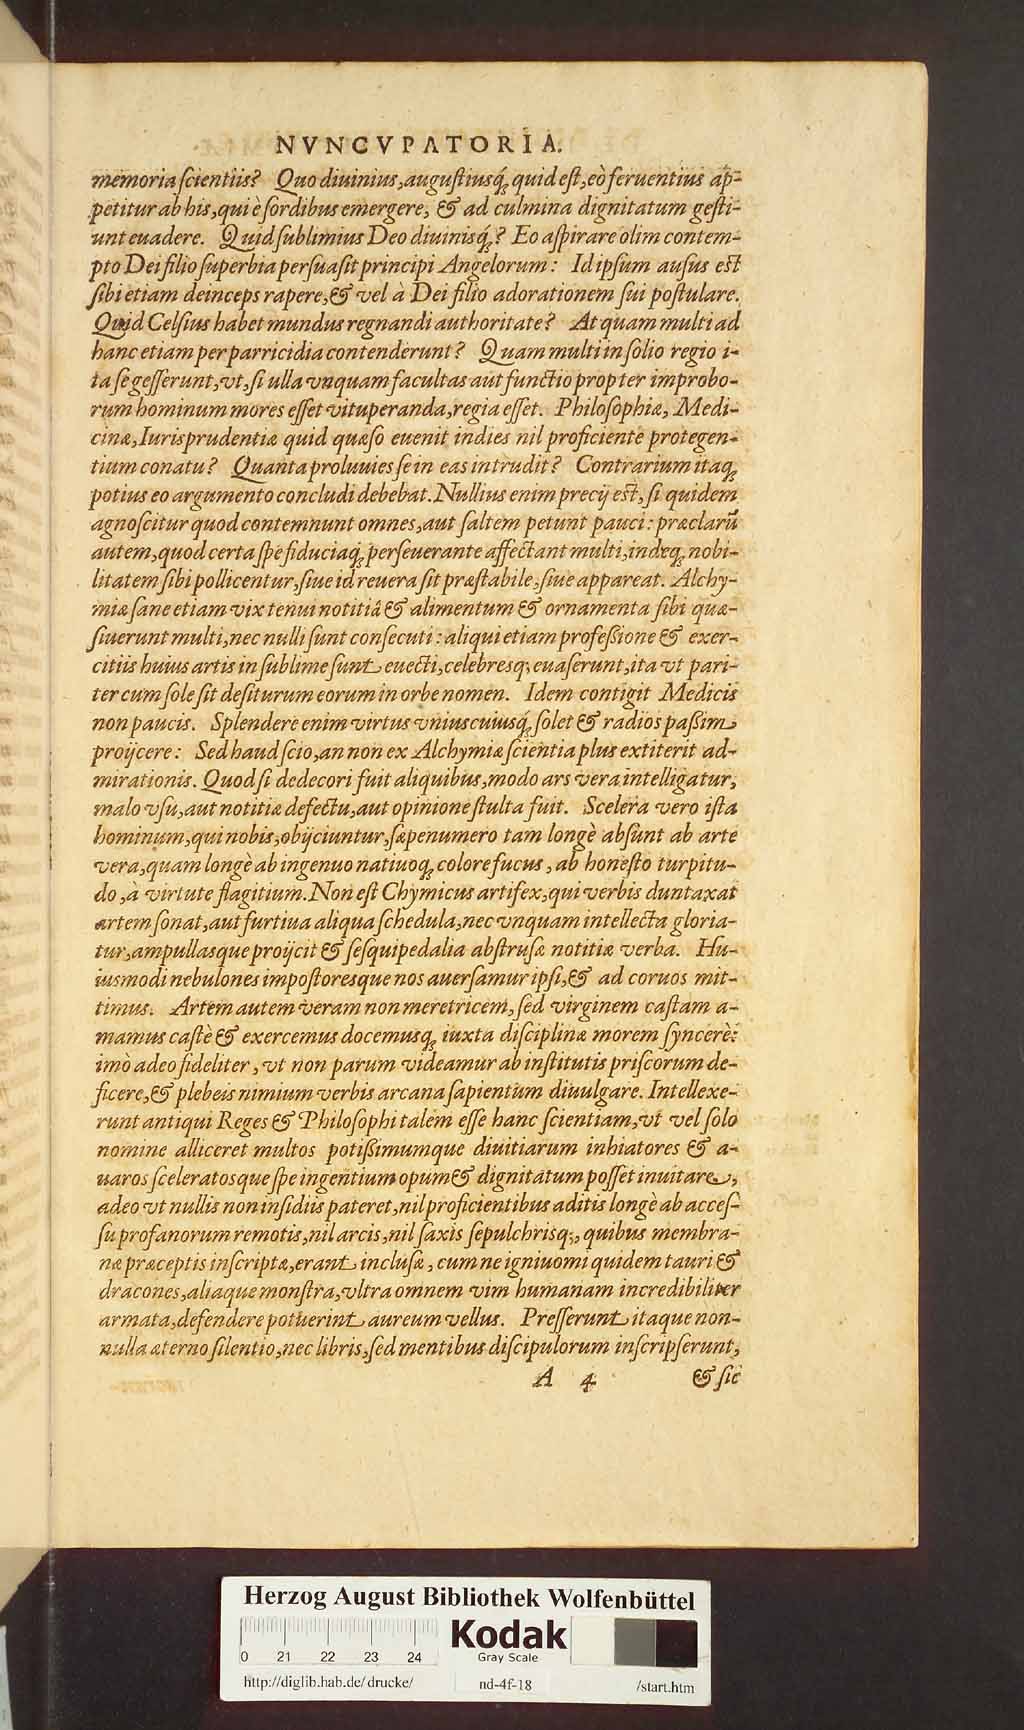 NVNCVPATORIA.
memoria ſcientiis? Quo diuinius, auguſtiusq́; quid eſt, eò feruentius ap-
petitur ab his, qui è ſordibus emergere, & ad culmina dignitatum geſti-
unt euadere. Quid ſublimius Deo diuinisq́;? Eo aſpirare olim contem-
pto Dei filio ſuperbia perſuaſit principi Angelorum: Id ipſum auſus est
ſibi etiam deinceps rapere, & vel à Dei filio adorationem ſui poſtulare.
Quid Celſius habet mundus regnandi authoritate? At quam multi ad
hanc etiam per parricidia contenderunt? Quam multi in ſolio regio i-
ta ſe geſſerunt, vt, ſi ulla vnquam facultas aut functio propter improbo-
rum hominum mores eſſet vituperanda, regia eſſet. Philoſophiæ, Medi-
cinæ, Iurisprudentiæ quid quæſo euenit indies nil proficiente protegen-
tium conatu? Quanta proluuies ſe in eas intrudit? Contrarium itaq;
potius eo argumento concludi debebat. Nullius enim precij est, ſi quidem
agnoſcitur quod contemnunt omnes, aut ſaltem petunt pauci: præclarū
autem, quod certa ſpe fiduciaq́; perſeuerante affectant multi, indeq; nobi-
litatem ſibi pollicentur, ſiue id reuera ſit præſtabile, ſiue appareat. Alchy-
miæ ſane etiam vix tenui notitiâ & alimentum & ornamenta ſibi quæ-
ſiuerunt multi, nec nulli ſunt conſecuti: aliqui etiam profeßione & exer-
citiis huius artis in ſublime ſunt euecti, celebresq; euaſerunt, ita vt pari-
ter cum ſole ſit deſiturum eorum in orbe nomen. Idem contigit Medicis
non paucis. Splendere enim virtus vniuscuiusq́; ſolet & radios paßim
proijcere: Sed haud ſcio, an non ex Alchymiæ ſcientia plus extiterit ad-
mirationis. Quod ſi dedecori fuit aliquibus, modo ars vera intelligatur,
malo vſu, aut notitiæ defectu, aut opinione ſtulta fuit. Scelera vero iſta
hominum, qui nobis, obijciuntur, ſæpenumero tam longè abſunt ab arte
vera, quam longè ab ingenuo natiuoq; colore fucus, ab honeſto turpitu-
do, à virtute flagitium. Non eſt Chymicus artifex, qui verbis duntaxat
artem ſonat, aut furtiua aliqua ſchedula, nec vnquam intellecta gloria-
tur, ampullasque proijcit & ſeſquipedalia abſtruſæ notitiæ verba. Hu-
iusmodi nebulones impoſtoresque nos auerſamur ipſi, & ad coruos mit-
timus. Artem autem veram non meretricem, ſed virginem caſtam a-
mamus caſtè & exercemus docemusq; iuxta diſciplinæ morem ſyncerè:
imò adeo fideliter, vt non parum videamur ab inſtitutis priſcorum de-
ficere, & plebeis nimium verbis arcana ſapientum diuulgare. Intellexe-
runt antiqui Reges & Philoſophi talem eſſe hanc ſcientiam, vt vel ſolo
nomine alliceret multos potißimumque diuitiarum inhiatores & a-
uaros ſceleratosque ſpe ingentium opum & dignitatum poſſet inuitare,
adeo vt nullis non inſidiis pateret, nil proficientibus aditis longè ab acceſ-
ſu profanorum remotis, nil arcis, nil ſaxis ſepulchrisq;, quibus membra-
næ præceptis inſcriptæ, erant incluſæ, cum ne igniuomi quidem tauri &
dracones, aliaque monſtra, vltra omnem vim humanam incredibiliter
armata, defendere potuerint aureum vellus. Preſſerunt itaque non-
nulla æterno ſilentio, nec libris, ſed mentibus diſcipulorum inſcripſerunt,
A 4 & ſic
Herzog August Bibliothek Wolfenbüttel
0 21 22 23 24
Kodak
Gray Scale
http://diglib.hab.de/drucke/ nd-4f-18 /start.htm